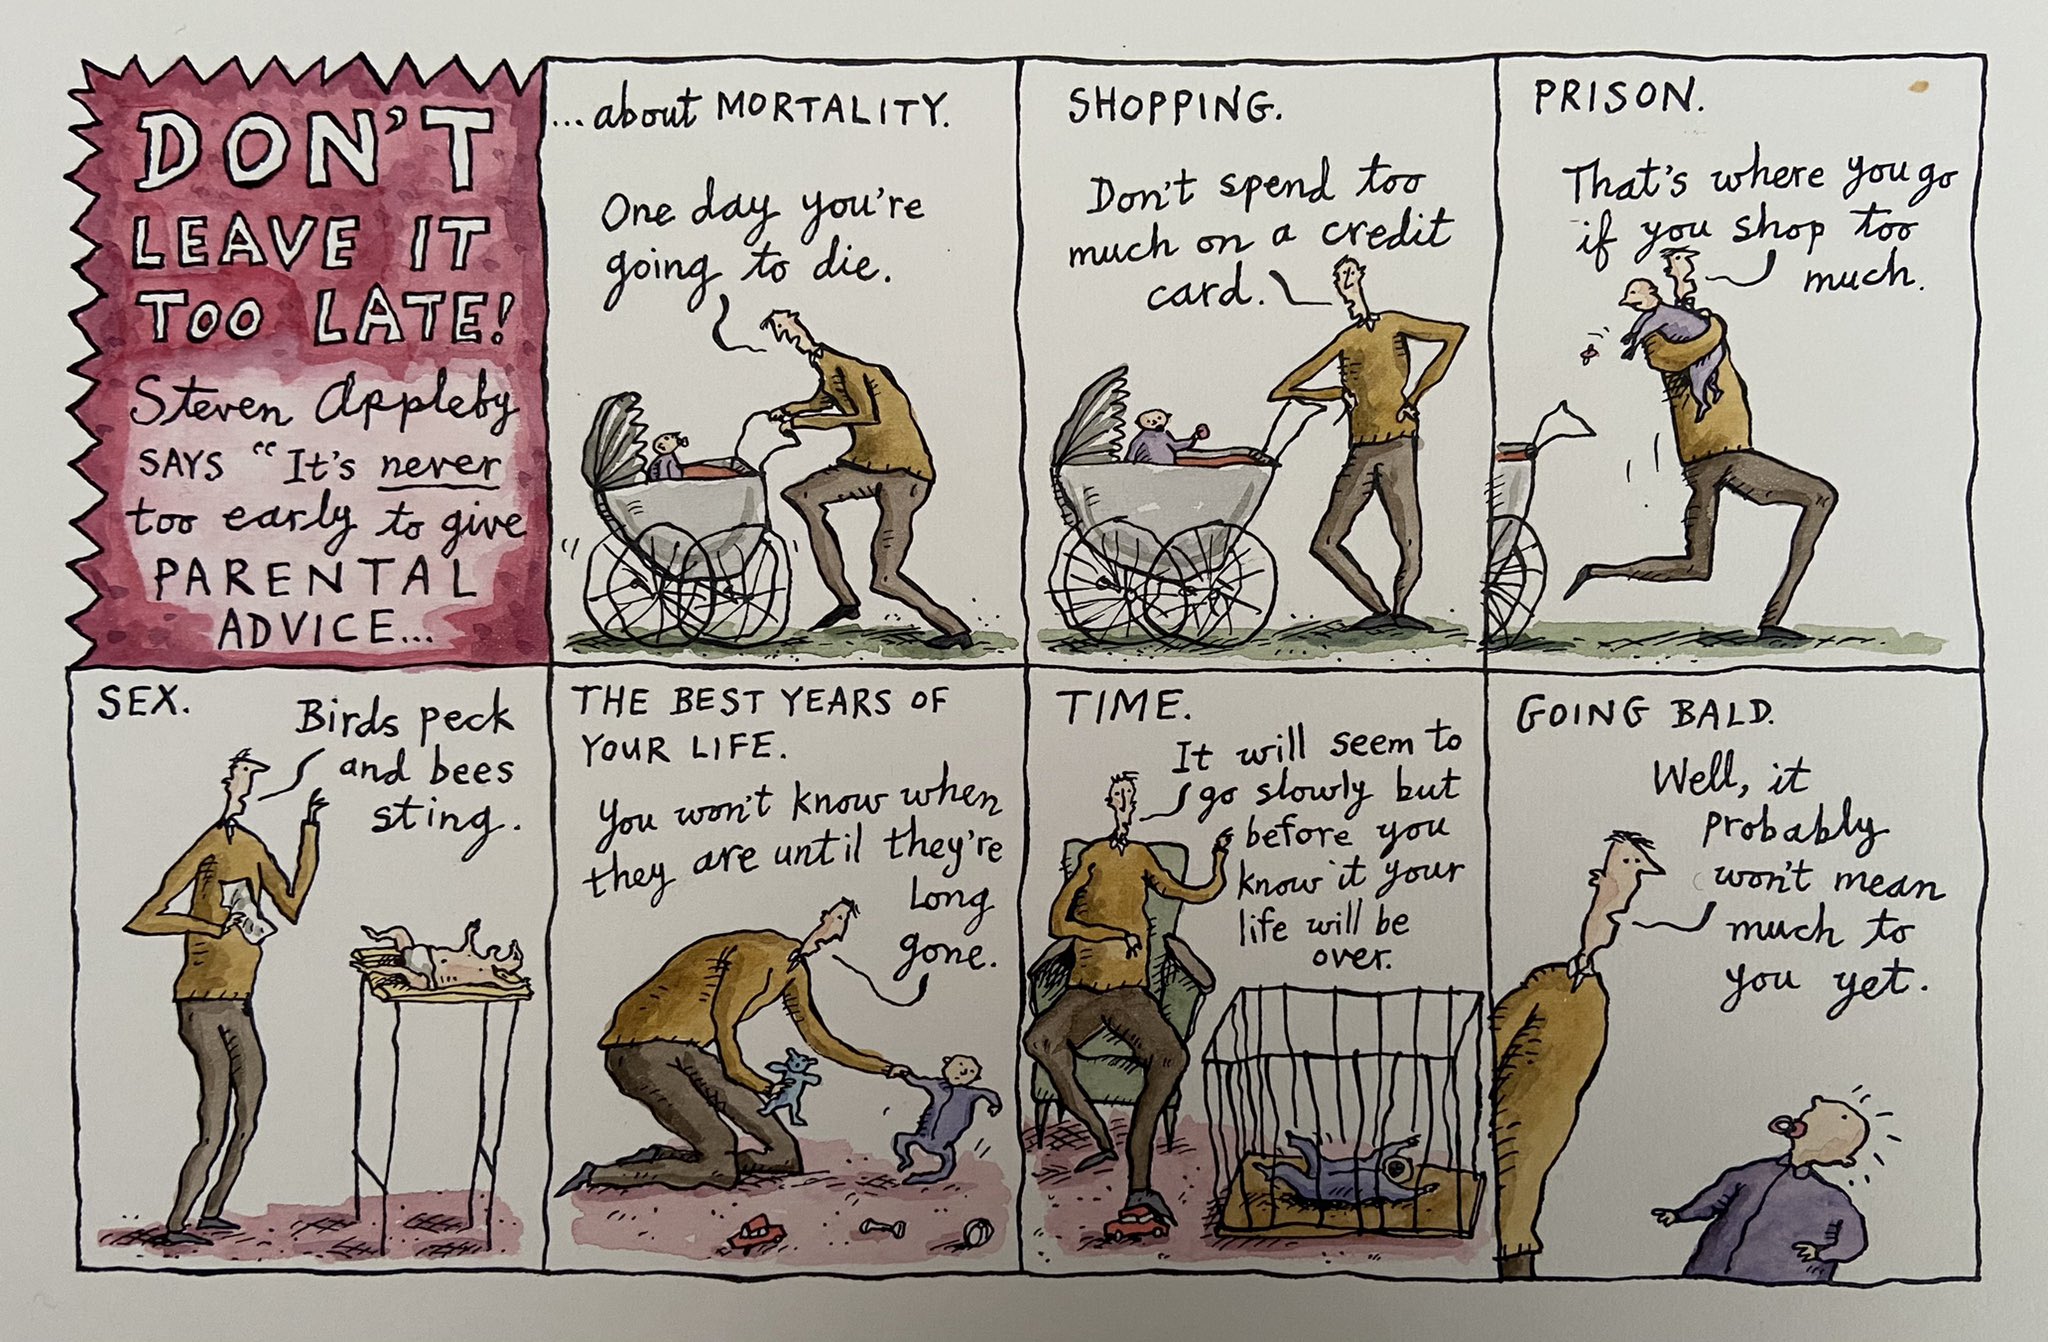 DON'T
LEAVE IT
TOO LATE!
Steven Appleby
SAYS "It's never
too early to give
PARENTAL
ADVICE...
...about MORTALITY.
One day you're
going to die.
SHOPPING.
Don't spend too
much on a credit
card.
PRISON.
That's where you go
if you shop too
much.
SEX.
Birds peck
and bees
sting.
THE BEST YEARS OF
YOUR LIFE.
You won't know when
they are until they're
long
gone.
TIME.
It will seem to
go slowly but
before you
know it your
life will be
over.
GOING BALD.
Well, it
probably
won't mean
much to
you yet.